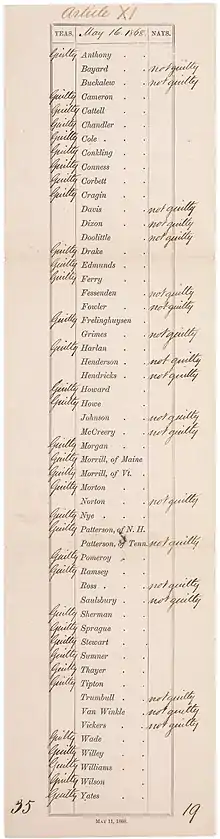 Article XI
YEAS. May 16. 1868. NAYS.
Guilty Anthony
Bayard not guilty
Buckalew not guilty
Guilty Cameron
Guilty Cattell
Guilty Chandler
Guilty Cole
Guilty Conkling
Guilty Conness
Guilty Corbett
Guilty Cragin
Davis not guilty
Dixon not guilty
Doolittle not guilty
Guilty Drake
Guilty Edmunds
Guilty Ferry
Fessenden not guilty
Fowler not guilty
Guilty Frelinghuysen
Grimes not guilty
Guilty Harlan
Henderson not guilty
Hendricks not guilty
Guilty Howard
Guilty Howe
Johnson not guilty
McCreery not guilty
Guilty Morgan
Guilty Morrill, of Maine
Guilty Morrill, of Vt.
Guilty Morton
Norton not guilty
Guilty Nye
Guilty Patterson, of N. H.
Patterson, of Tenn. not guilty
Guilty Pomeroy
Guilty Ramsey
Ross not guilty
Saulsbury not guilty
Guilty Sherman
Guilty Sprague
Guilty Stewart
Guilty Sumner
Guilty Thayer
Guilty Tipton
Trumbull not guilty
Van Winkle not guilty
Vickers not guilty
Guilty Wade
Guilty Willey
Guilty Williams
Guilty Wilson
Guilty Yates
35 19
MAY 11, 1868.